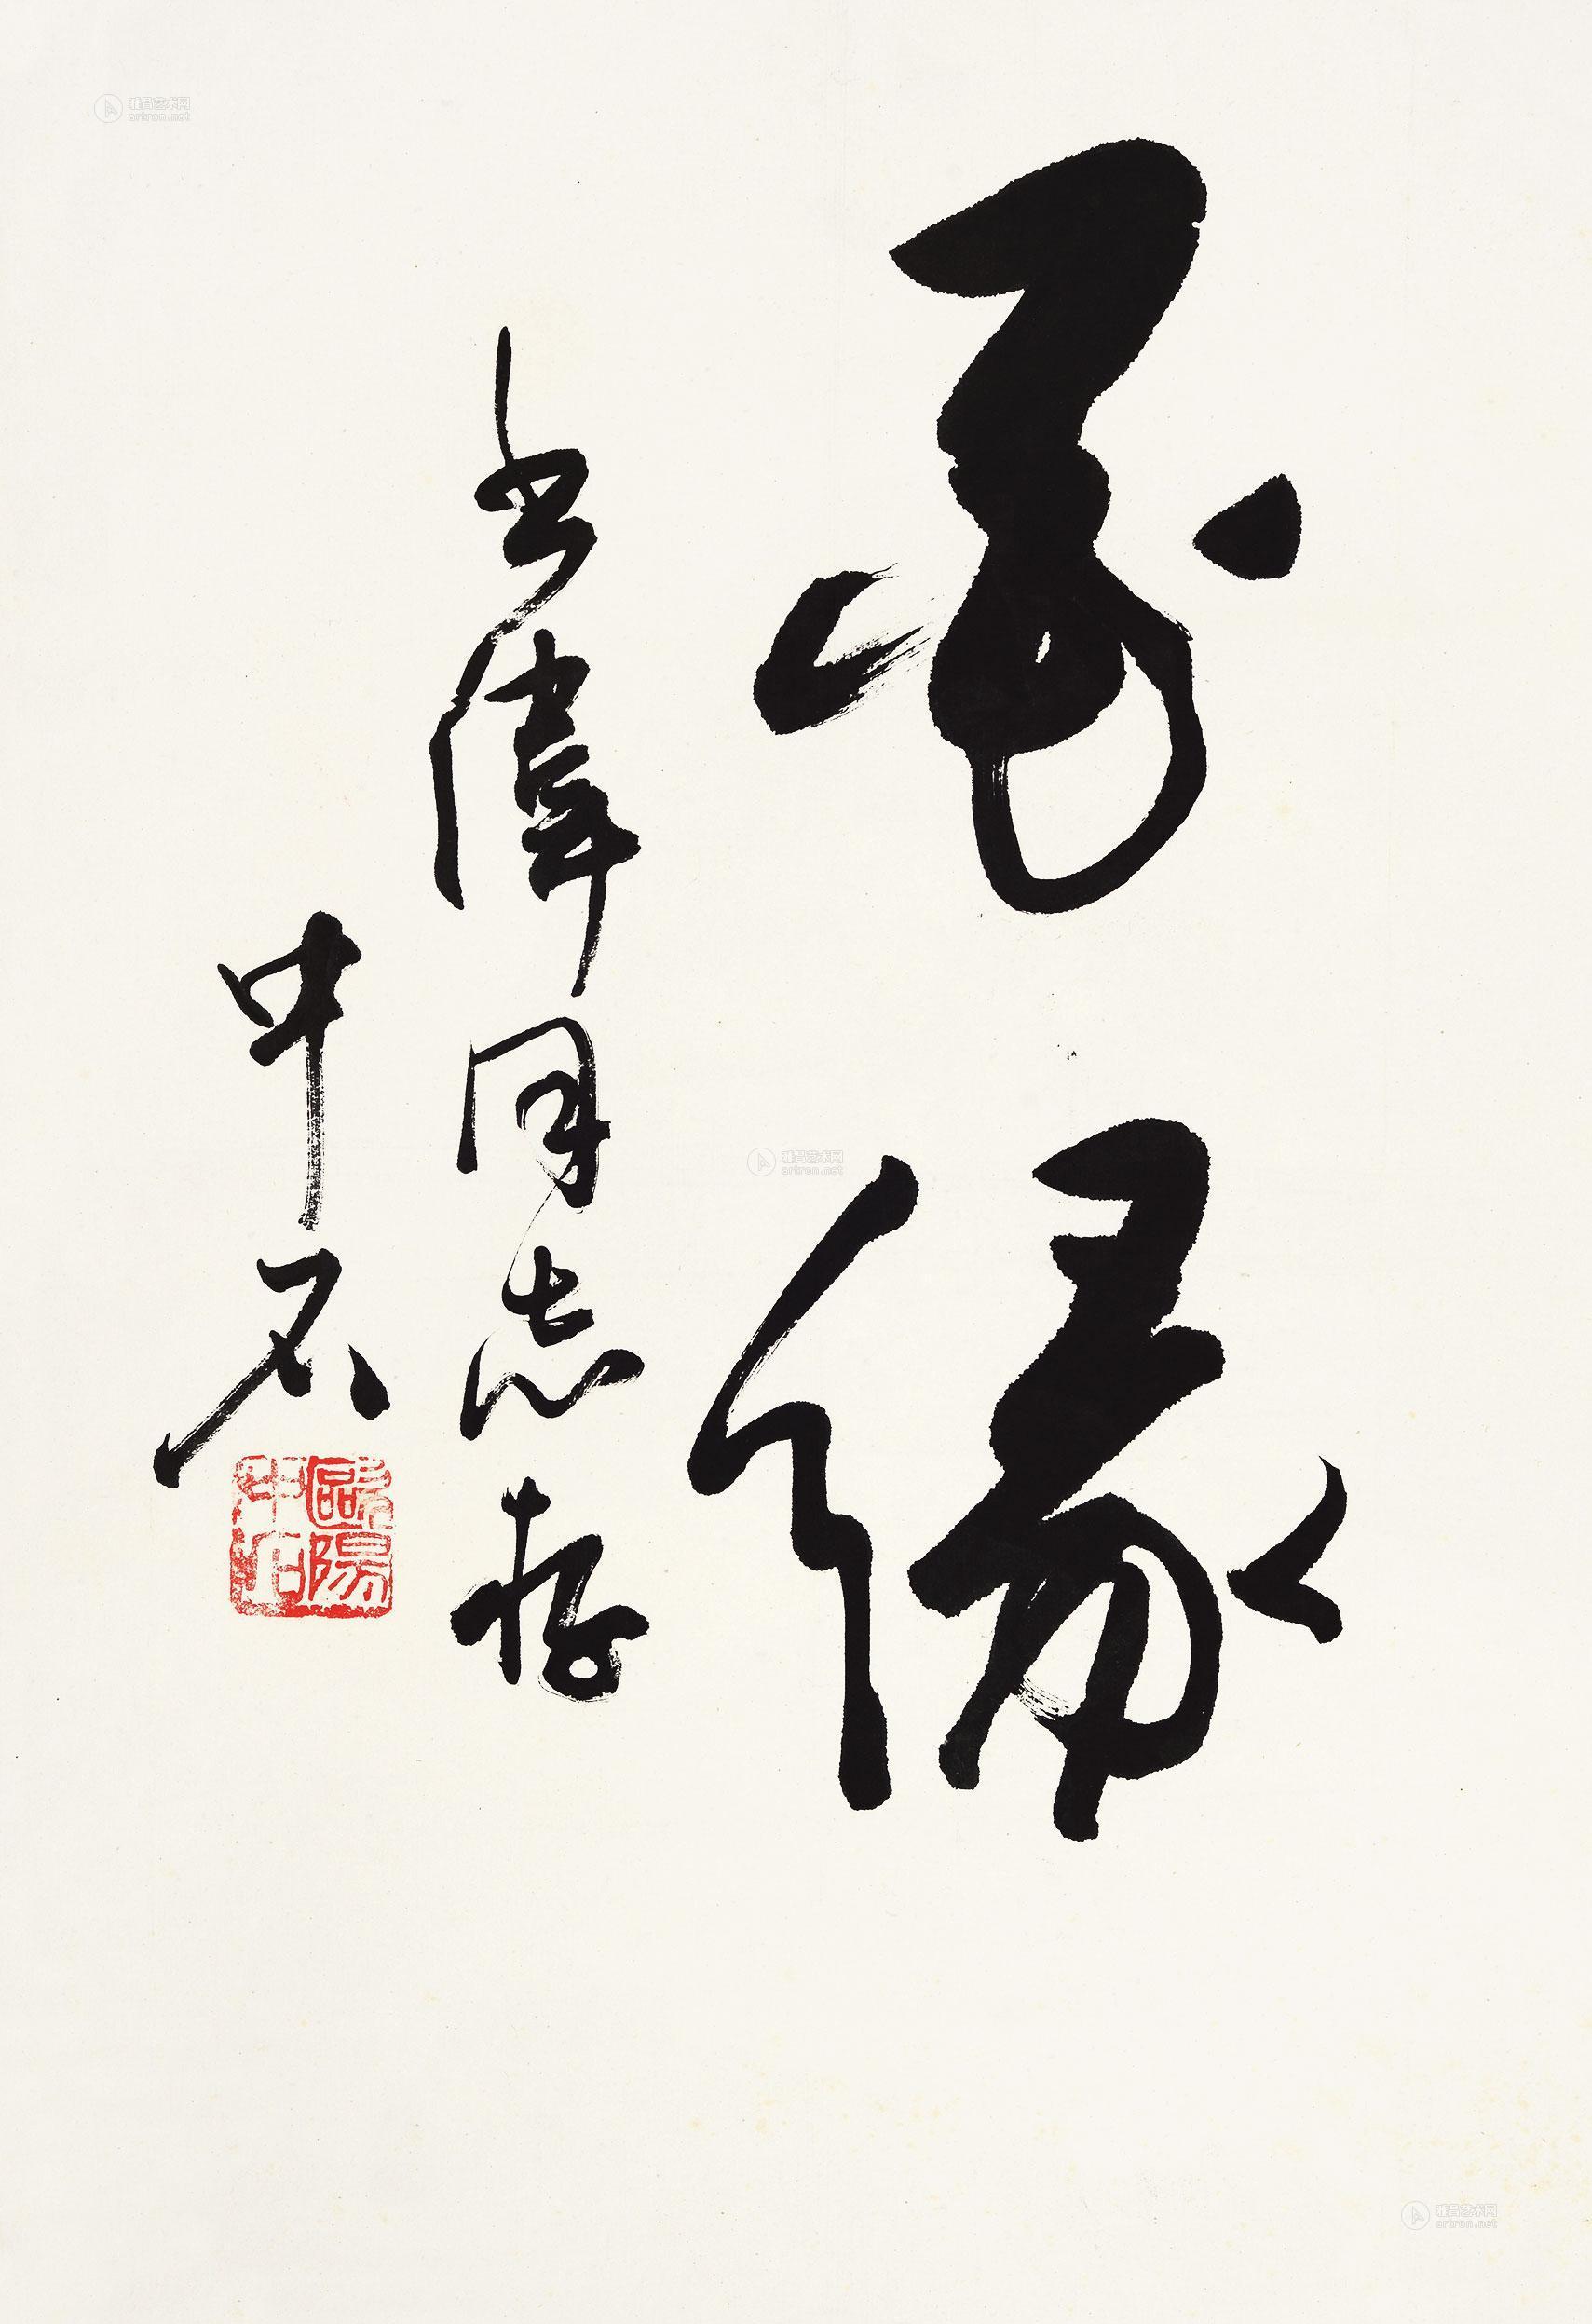 墨緣
書偉同志存
中石
歐陽中石
雅昌艺术网
artron.net
雅昌艺术网
artron.net
雅昌艺术网
artron.net